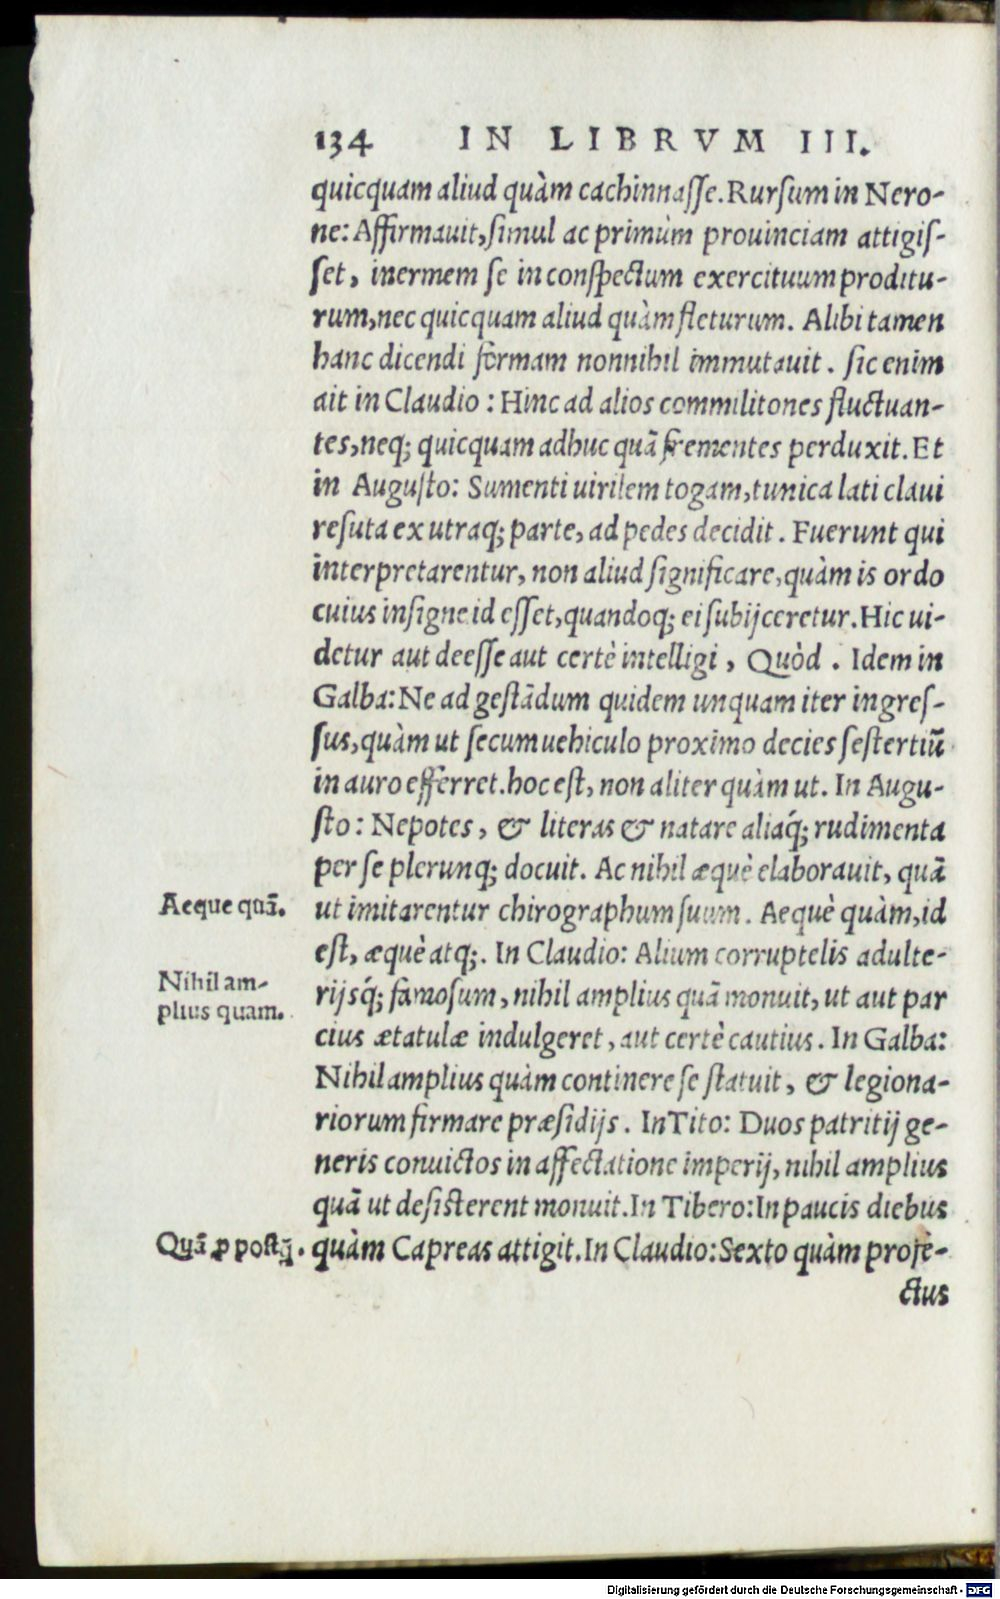 134 IN LIBRVM III.
quicquam aliud quàm cachinnaſſe. Rurſum in Nero-
ne: Affirmauit, ſimul ac primùm prouinciam attigiſ-
ſet, inermem ſe in conſpectum exercituum proditu-
rum, nec quicquam aliud quàm fleturum. Alibi tamen
hanc dicendi formam nonnihil immutauit. ſic enim
ait in Claudio: Hinc ad alios commilitones fluctuan-
tes, neq; quicquam adhuc quã frementes perduxit. Et
in Auguſto: Sumenti uirilem togam, tunica lati claui
reſuta ex utraq; parte, ad pedes decidit. Fuerunt qui
interpretarentur, non aliud ſignificare, quàm is ordo
cuius inſigne id eſſet, quandoq; ei ſubijceretur. Hic ui-
detur aut deeſſe aut certè intelligi, Quòd. Idem in
Galba: Ne ad geſtãdum quidem unquam iter ingreſ-
ſus, quàm ut ſecum uehiculo proximo decies ſeſtertiũ
in auro efferret. hoc eſt, non aliter quàm ut. In Augu-
ſto: Nepotes, & literas & natare aliaq́; rudimenta
per ſe plerunq; docuit. Ac nihil æquè elaborauit, quã
Aeque quã.
ut imitarentur chirographum ſuum. Aequè quàm, id
eſt, æquè atq;. In Claudio: Alium corruptelis adulte-
Nihil am-
plius quam.
rijsq́; famoſum, nihil amplius quã monuit, ut aut par
cius ætatulæ indulgeret, aut certè cautius. In Galba:
Nihil amplius quàm continere ſe ſtatuit, & legiona-
riorum firmare præſidijs. In Tito: Duos patritij ge-
neris conuictos in affectatione imperij, nihil amplius
quã ut deſiſterent monuit. In Tibero: In paucis diebus
Quã ꝓ poſtq̃.
quàm Capreas attigit. In Claudio: Sexto quàm profe-
ctus
Digitalisierung gefördert durch die Deutsche Forschungsgemeinschaft - DFG